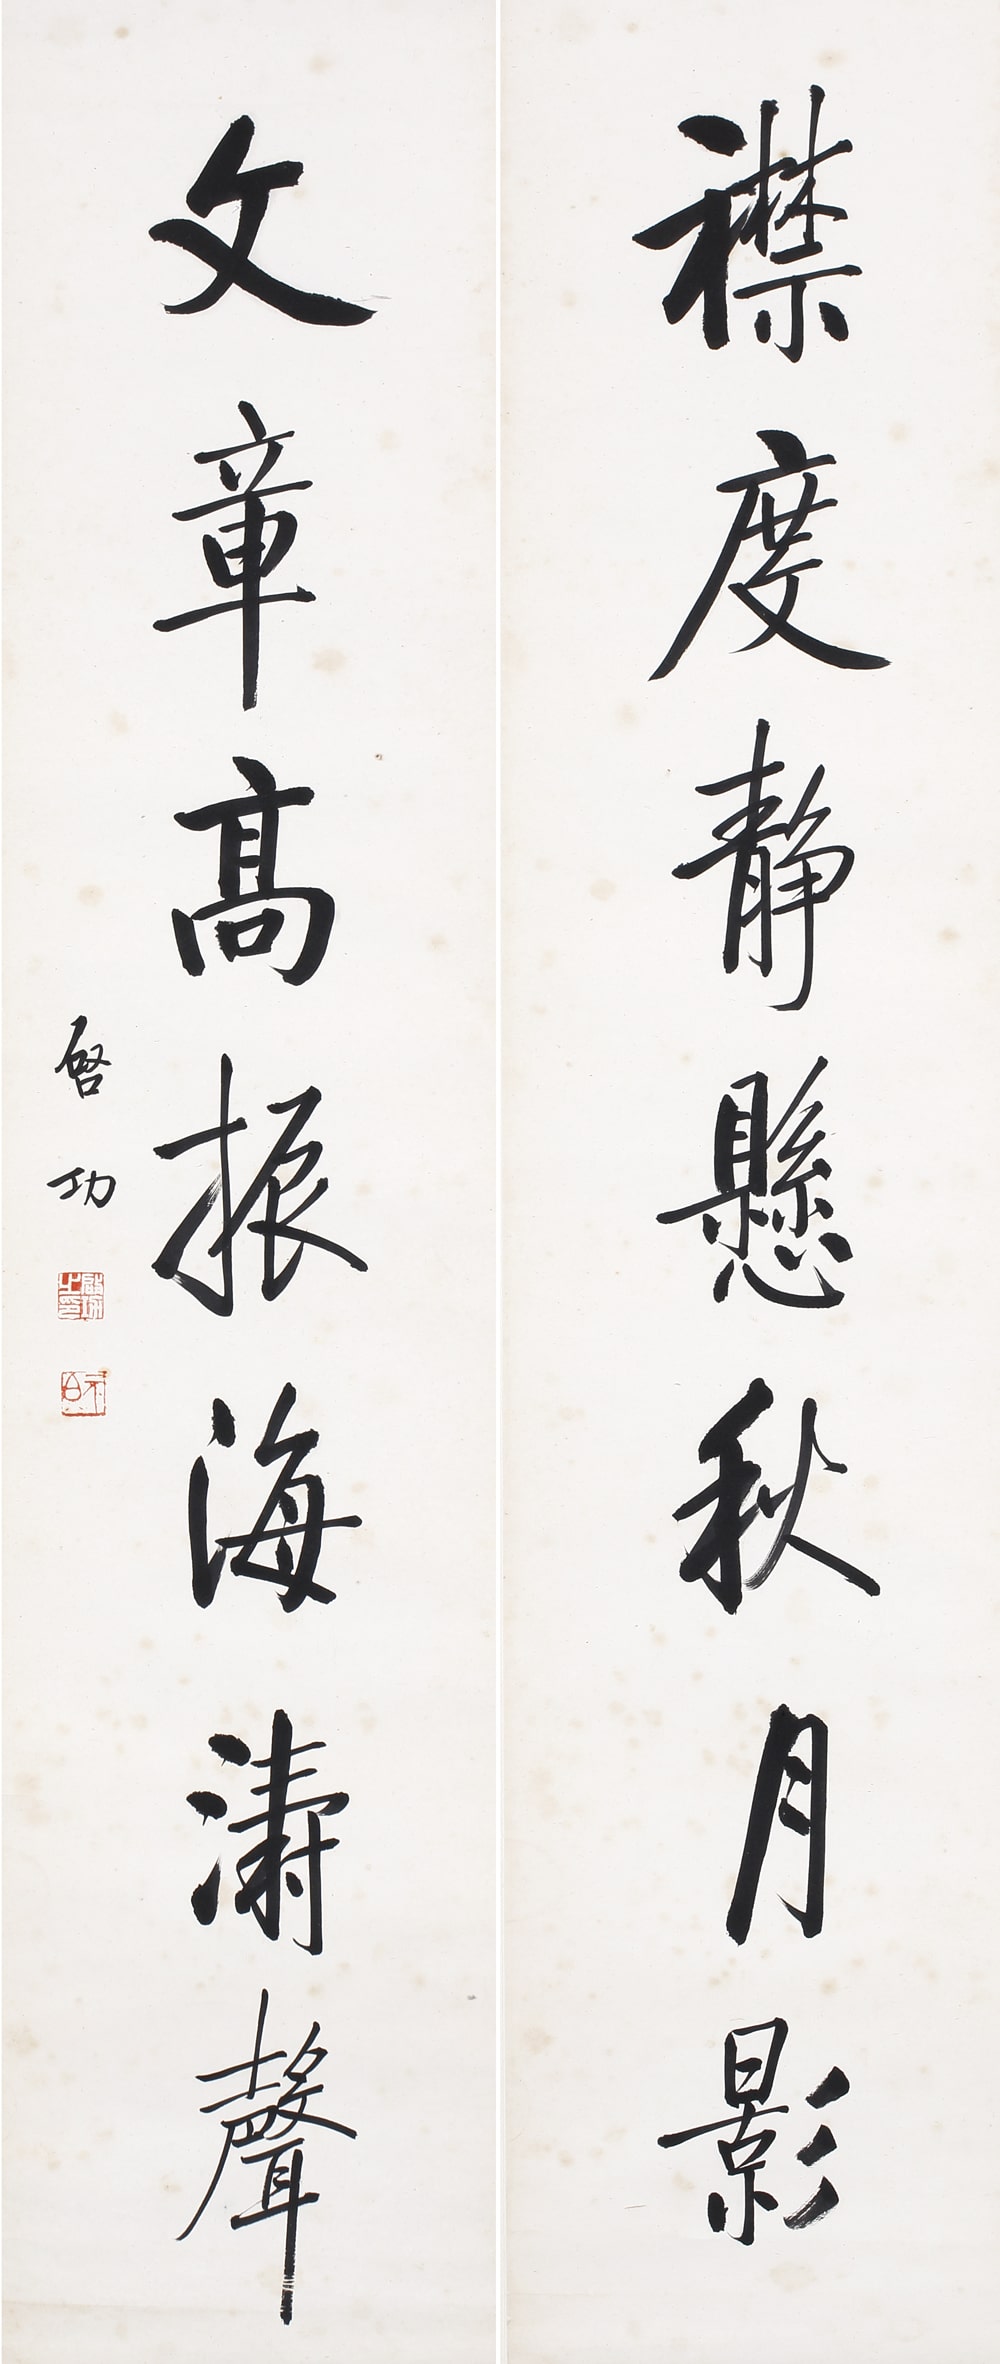 襟度靜懸秋月影
文章高振海濤聲
啓功
啟功之印